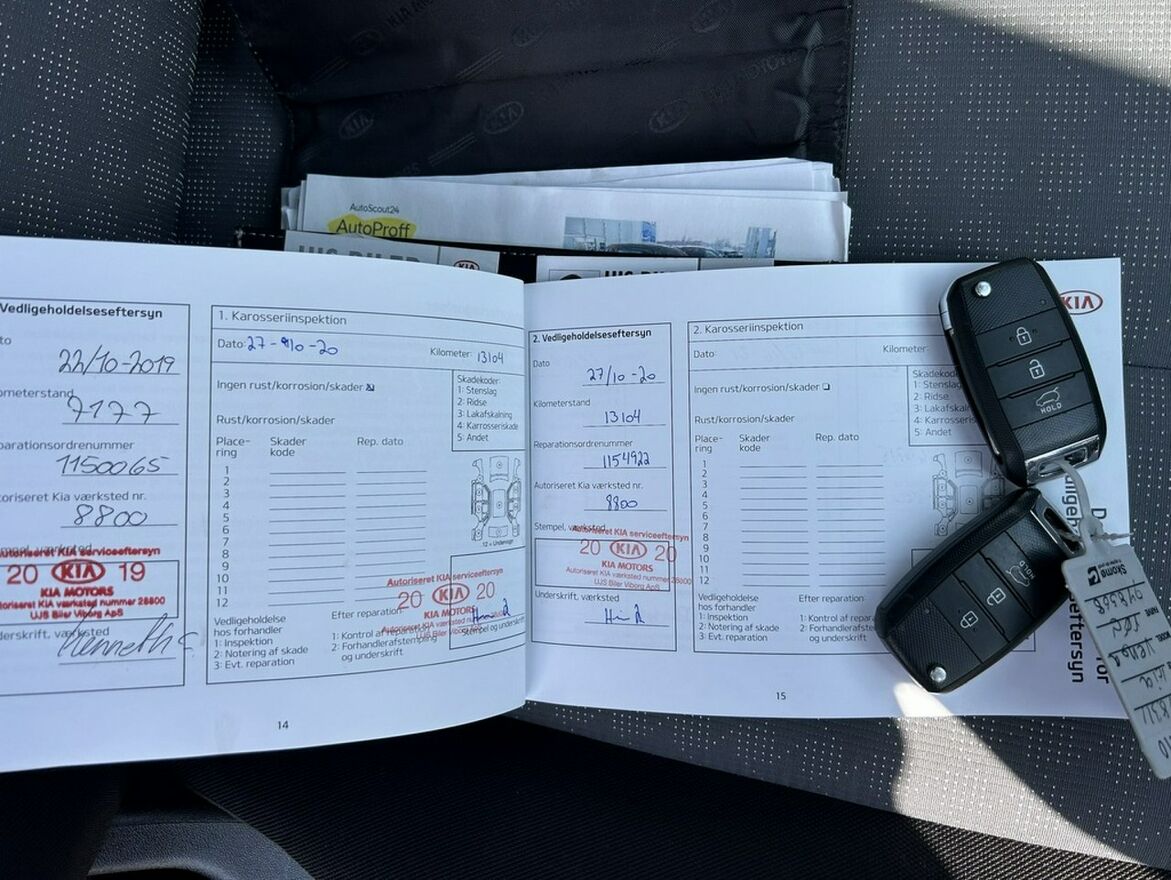 AutoScout24
AutoProff
UJS BILER
KIA
UJS BILER
Vedligeholdelseseftersyn
22/10-2019
7177
1150065
Kia værksted nr.
8800
Autoriseret KIA serviceeftersyn
20 KIA 19
KIA MOTORS
Autoriseret KIA værksted nummer 28800
UJS Biler Viborg ApS
1. Karosseriinspektion
Dato: 27-10-20 Kilometer: 13104
Ingen rust/korrosion/skader
Rust/korrosion/skader
Skadekoder:
1: Stenslag
2: Ridse
3: Lakafskalning
4: Karrosseriskade
5: Andet
Place-
ring
Skader
kode
Rep. dato
1
2
3
4
5
6
7
8
9
10
11
12
12 = Undervogn
Vedligeholdelse
hos forhandler
1: Inspektion
2: Notering af skade
3: Evt. reparation
Efter reparation:
1: Kontrol af reparation
2: Forhandlerafstempling
og underskrift
Autoriseret KIA serviceeftersyn
20 KIA 20
Stempel og underskrift
14
2. Vedligeholdelseseftersyn
Dato
27/10-20
Kilometerstand
13104
Reparationsordrenummer
1154922
Autoriseret Kia værksted nr.
8800
Stempel, værksted
Autoriseret KIA serviceeftersyn
20 KIA 20
KIA MOTORS
Autoriseret KIA værksted nummer 28800
UJS Biler Viborg ApS
Underskrift, værksted
2. Karosseriinspektion
Dato: Kilometer:
Ingen rust/korrosion/skader
Rust/korrosion/skader
Skadekoder:
1: Stenslag
2: Ridse
3: Lakafskalning
4: Karrosseriskade
5: Andet
Place-
ring
Skader
kode
Rep. dato
1
2
3
4
5
6
7
8
9
10
11
12
Vedligeholdelse
hos forhandler
1: Inspektion
2: Notering af skade
3: Evt. reparation
Efter reparation:
1: Kontrol af
2: Forhandlerafstempling
og underskrift
15
KIA
for
HOLD
HOLD
Skome